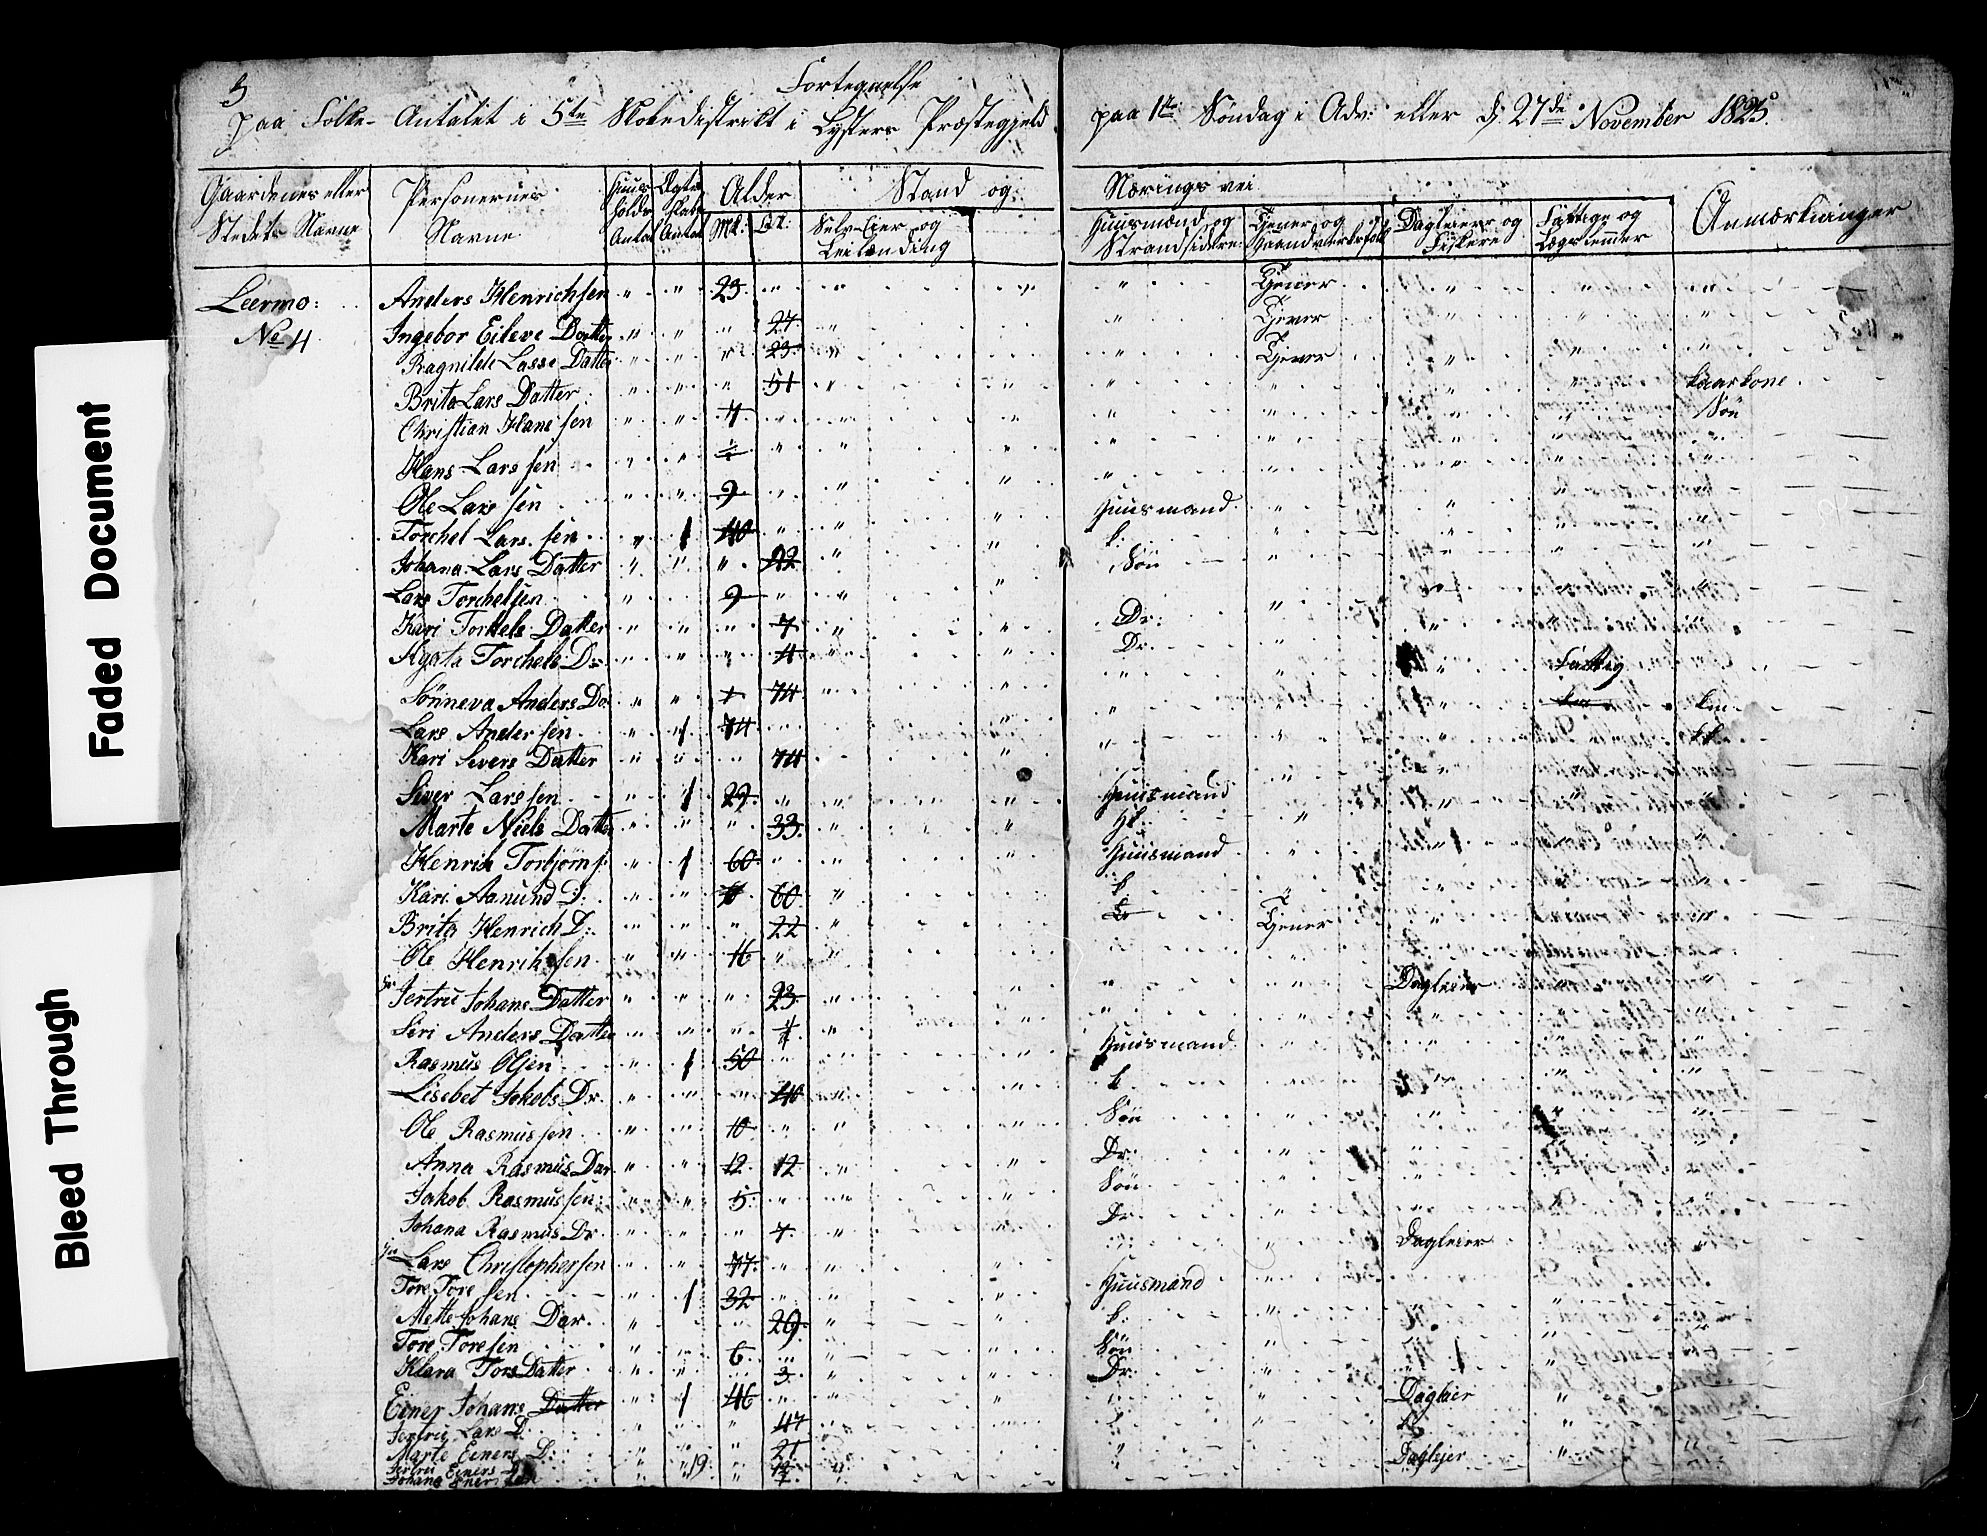 Faded Document
Bleed Through
3
Fortegnelse
paa Folke- Antalet i 5te Skoledistrikt i Lysters Præstegjeld paa 1te Søndag i Adv: eller d. 27de November 1825.
Gaardenes eller Stedets Navne
Personernes Navne
Huus holds Antal
Alder
Mk:
Qk:
Stand og
Nærings vei
Selv-Eier og Leilænding
Huusmænd og Strandsiddere
Tjener og
Dagleier og Fiskere
Fattige og Lægslemmer
Anmærkninger
Leermo:
No 4
Anders Henrichsen 23 Tjener
Ingebor Eileve Datter 27 Tjener
Ragnilde Lasse Datter 23 Tjener
Brita Lars Datter 51 Kaarkone
Christian Hansen 4 Søn
Hans Larssen
Ole Larssen 9
Torchel Larssen 1 40 Huusmand
Johana Lars Datter 42 k.
Lars Torchelsen 9 Søn
Kari Torkels Datter 7 Dr:
Agata Torchels Dr 4 Dr.
Sønneva Anders Dr 74 Fattig
Lars Andersen 1 74
Kari Sivers Datter 74
Siver Larssen 1 29 Huusmand
Marte Niels Datter 33
Henrik Torbjørns: 1 60 Huusmand
Kari Amund D: 60 k
Brita Henrich D: 22 Tjener
Ole Henriksen 16
Jertru Johans Datter 23 Dagleier
Siri Anders Datter
Rasmus Olsen 1 50 Huusmand
Lisebet Jakobs Dr. 40 k
Ole Rasmussen 10 Søn
Anna Rasmus Dar 12 12 Dr:
Jakob Rasmussen 5 Søn
Johana Rasmus Dr 7 Dr
Lars Christophersen 77 Dagleier
Tore Toresen 1 32 Huusmand
Mette Johans Dar. 29 k.
Tore Toresen 6 Søn
Klara Tors Datter 3 Dr
Einer Johans Datter 1 46 Dagleier
Jertru Lars D: 47
Marte Einers D: 21 Dagleier
Jertru Einers D 19
Johans Einersen